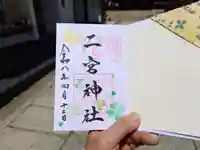 二宮神社
令和八年四月十二日